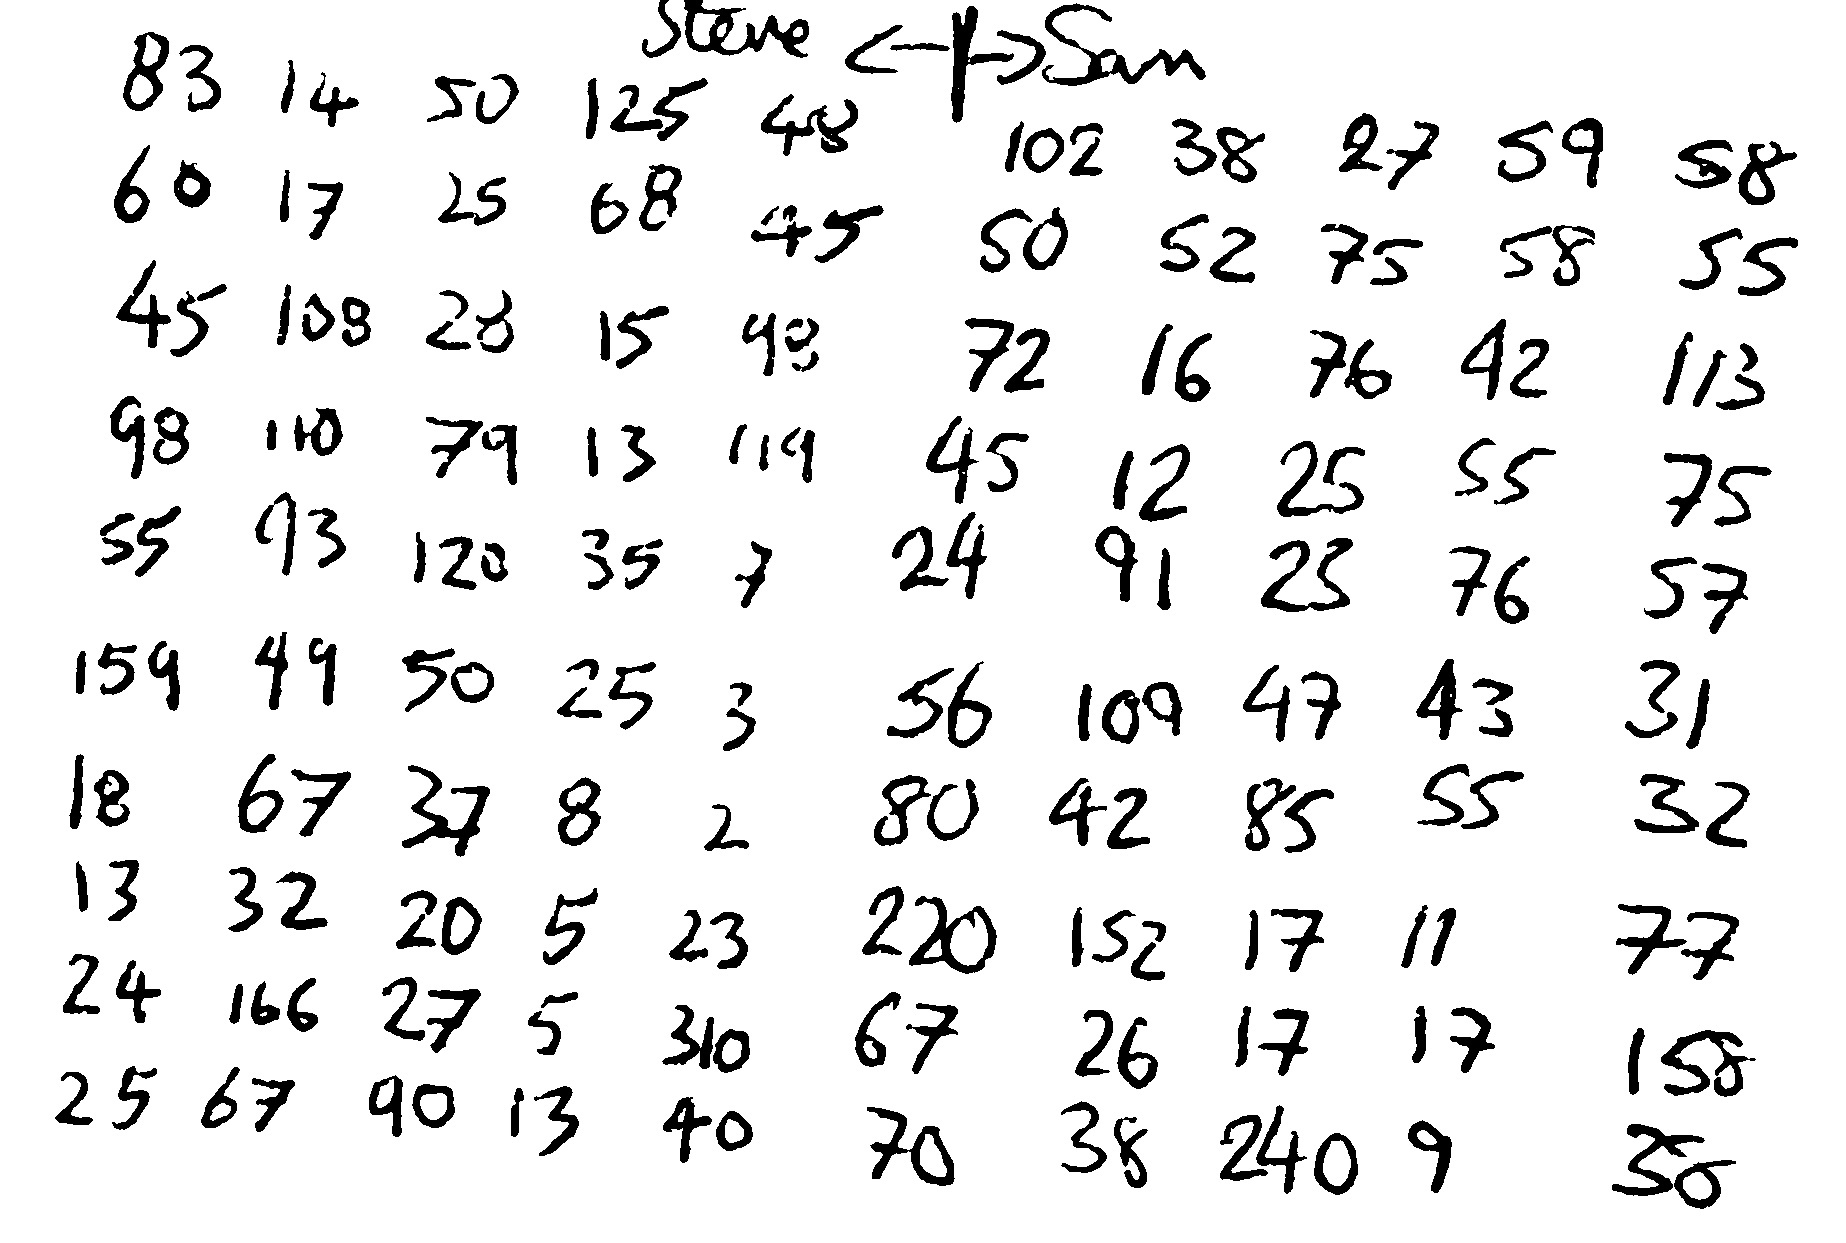 Steve <-|-> Sam
83 14 50 125 48 102 38 27 59 58
60 17 25 68 45 50 52 75 58 55
45 108 28 15 98 72 16 76 42 113
98 110 79 13 119 45 12 25 55 75
55 93 120 35 7 24 91 23 76 57
159 49 50 25 3 56 109 47 43 31
18 67 37 8 2 80 42 85 55 32
13 32 20 5 23 220 152 17 11 77
24 166 27 5 310 67 26 17 17 158
25 67 90 13 40 70 38 240 9 38